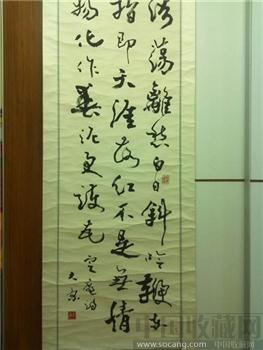 浩蕩離愁白日斜吟鞭东
指即天涯落红不是無情
物化作春泥更護花
中国收藏网
www.socang.com 中国收藏网